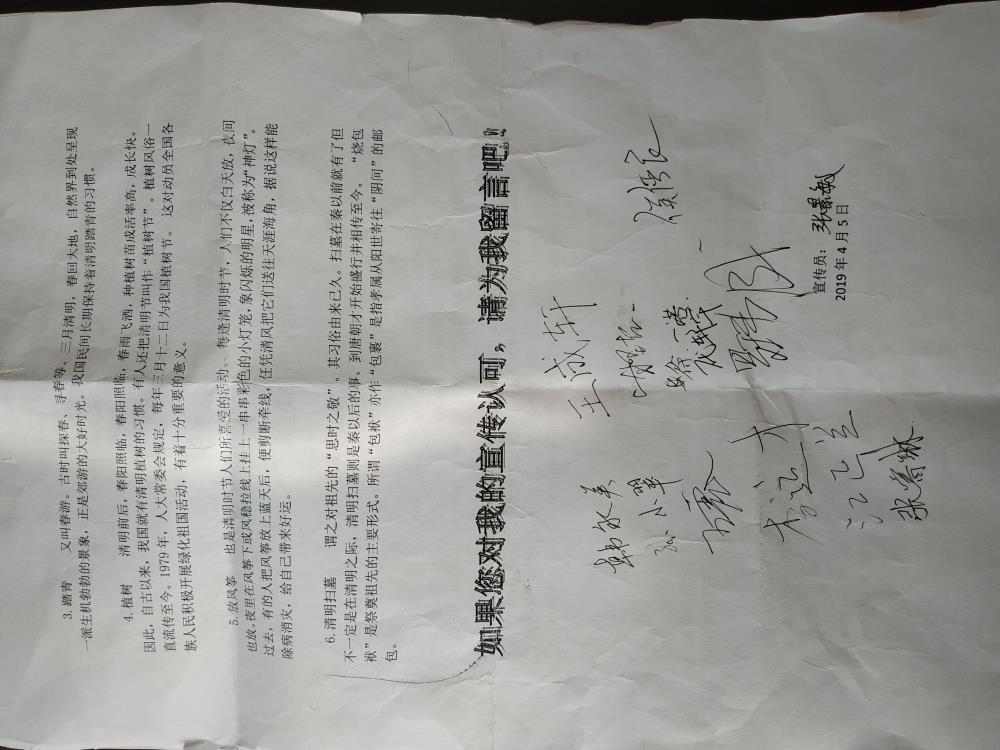 3. 踏青 又叫春游。古时叫探春、寻春等。三月清明，春回大地，自然界到处呈现
一派生机勃勃的景象，正是郊游的大好时光。我国民间长期保持着清明踏青的习惯。
4. 植树 清明前后，春阳照临，春阳照临，春雨飞洒，种植树苗成活率高，成长快。
因此，自古以来，我国就有清明植树的习惯。有人还把清明节叫作“植树节”。植树风俗一
直流传至今。1979年，人大常委会规定，每年三月十二日为我国植树节。 这对动员全国各
族人民积极开展绿化祖国活动，有着十分重要的意义。
5. 放风筝 也是清明时节人们所喜爱的活动。每逢清明时节，人们不仅白天放，夜间
也放。夜里在风筝下或风稳拉线上挂上一串串彩色的小灯笼，象闪烁的明星，被称为“神灯”。
过去，有的人把风筝放上蓝天后，便剪断牵线，任凭清风把它们送往天涯海角，据说这样能
除病消灾，给自己带来好运。
6. 清明扫墓 谓之对祖先的“思时之敬”。其习俗由来已久。扫墓在秦以前就有了但
不一定是在清明之际，清明扫墓则是秦以后的事。到唐朝才开始盛行并相传至今。 “烧包
袱”是祭奠祖先的主要形式。所谓“包袱”亦作“包裹”是指孝属从阳世寄往“阴间”的邮
包。
如果您对我的宣传认可，请为我留言吧！
王成轩
韩永美
张春琳
宣传员：张景敏
2019年4月5日